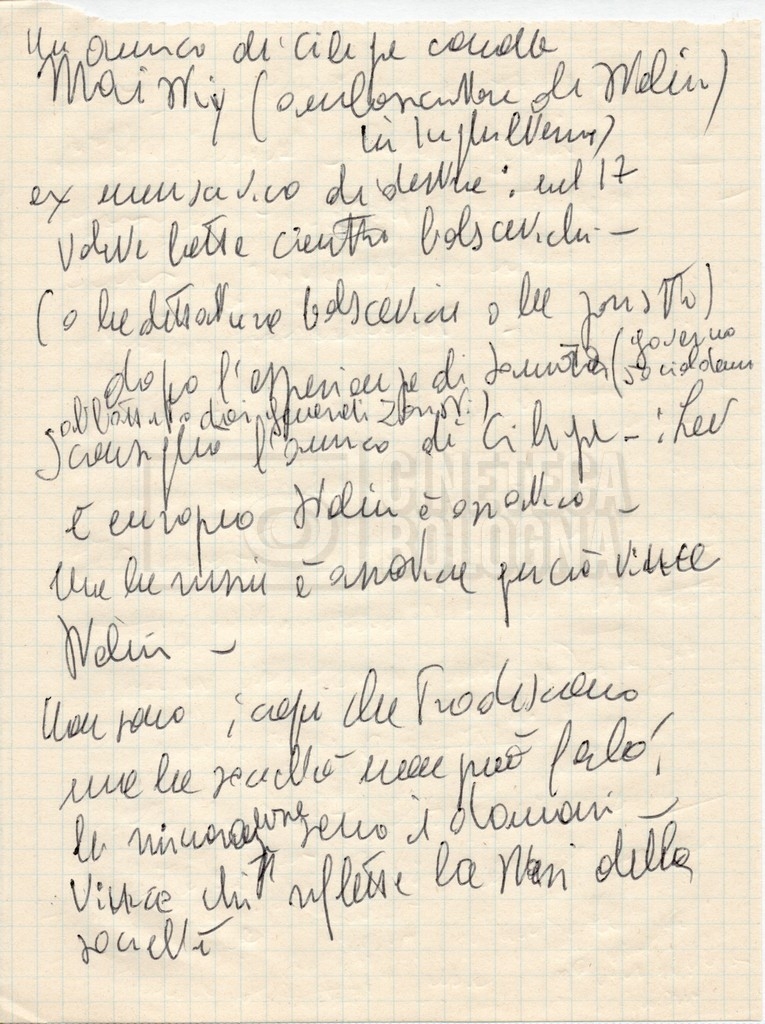 Un amico di Ciliga conobbe
Maisky (ambasciatore di Stalin)
in Inghilterra)
ex menscevico di destra: nel 17
volle lotta contro bolscevichi –
(o la dittatura bolscevica o la zarista)
dopo l'esperienza di Samara (governo
socialdem
abbattuto dai generali zaristi)
l'amico di Ciliga – : Lev
è europeo Stalin è asiatico –
ma la russia è asiatica perciò vince
Stalin –
Non sono i capi che tradiscono
ma la società non può farlo!
le minoranze sono il domani –
Vince chi riflette la stasi della
società
CINETECA
BOLOGNA